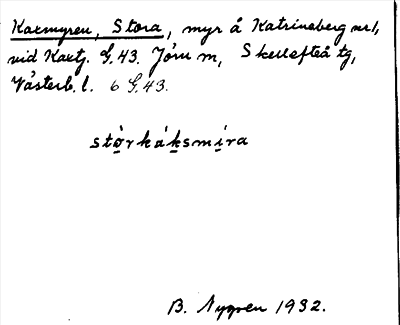 Kaxmyren, Stora, myr å Katrineberg nr 1,
vid Kaxtj. G.43. Jörn sn, Skellefteå tg,
Västerb. l. 6 G.43.
stòrkáksmira
B. Nygren 1932.